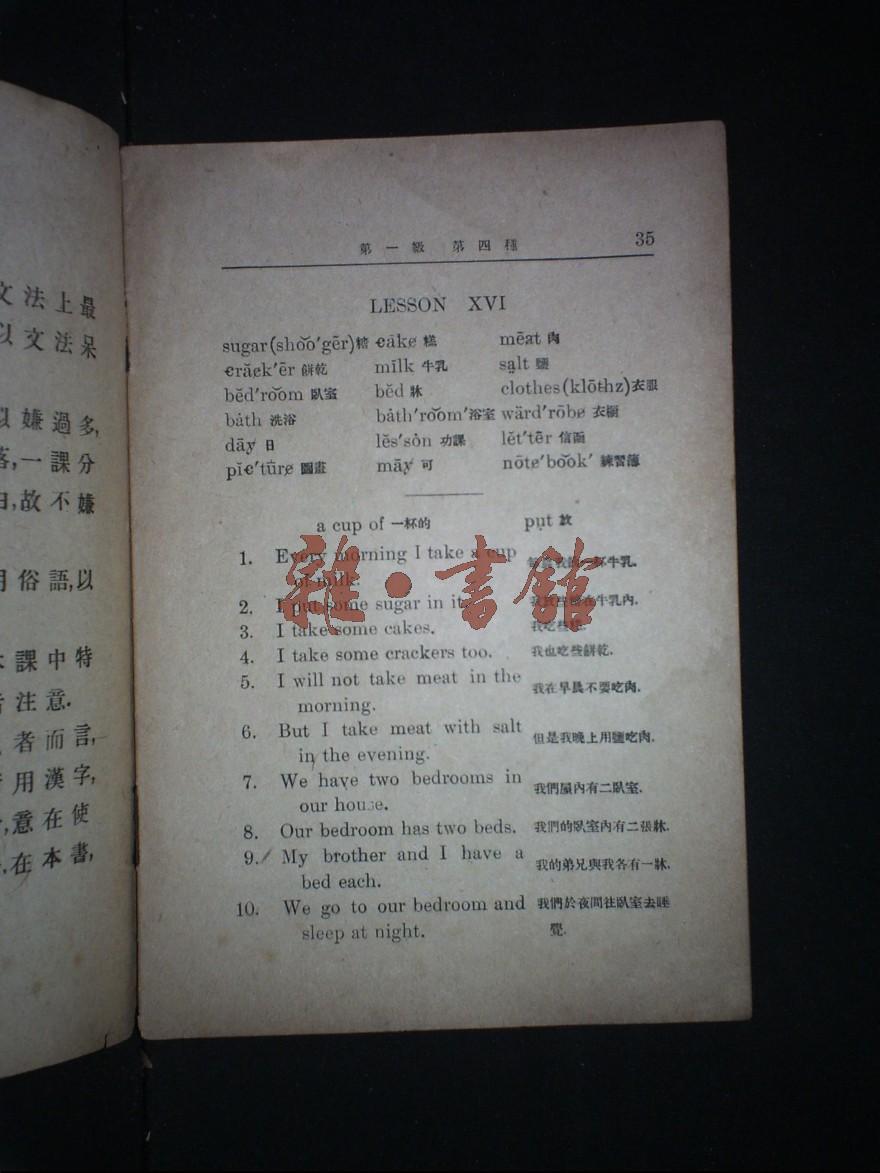 文法上最
以文法呆
似嫌過多,
落,一課分
白,故不嫌
用俗語,以
本課中特
注意.
者而言,
用漢字,
意在使
在本書,
第一級 第四種 35
LESSON XVI
sugar(sho͝o′gẽr)糖 c̵āke̸ 糕 mēat 肉
c̵răck′ẽr 餅乾 mĭlk 牛乳 sa̤lt 鹽
bĕd′ro͞om 臥室 bĕd 牀 clothes(klōthz)衣服
bȧth 洗浴 bȧth′ro͞om′浴室 wärd′rōbe̸ 衣櫥
dāy 日 lĕs′sȯn 功課 lĕt′tẽr 信函
pĭc̵′tūre̸ 圖畫 māy 可 nōte̸′bo͝ok′ 練習簿
a cup of 一杯的 pu̇t 放
1. Every morning I take a cup
of milk.
牛乳.
2. I put some sugar in it.
在牛乳內.
3. I take some cakes.
我吃些糕.
4. I take some crackers too. 我也吃些餅乾.
5. I will not take meat in the
morning.
我在早晨不要吃肉.
6. But I take meat with salt
in the evening.
但是我晚上用鹽吃肉.
7. We have two bedrooms in
our house.
我們屋內有二臥室.
8. Our bedroom has two beds. 我們的臥室內有二張牀.
9. My brother and I have a
bed each.
我的弟兄與我各有一牀.
10. We go to our bedroom and
sleep at night.
我們於夜間往臥室去睡
覺.
雜·書館